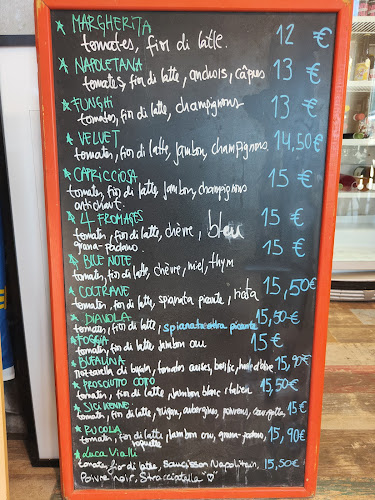 MARGHERITA 12 €
tomates, fior di latte.
NAPOLETANA 13 €
tomates, fior di latte, anchois, câpres
FUNGHI 13 €
tomates, fior di latte, champignons
VELVET 14,50€
tomates, fior di latte, jambon, champignons
CAPRICCIOSA 15 €
tomates, fior di latte, jambon, champignons
artichaut.
4 FROMAGES 15 €
tomates, fior di latte, chèvre, bleu
grana-padano 15 €
BLUE NOTE
tomates, fior di latte, chèvre, miel, thym
COLTRANE 15,50€
tomates, fior di latte, spianata picante,
DIAVOLA 15,50€
tomates, fior di latte, spianata picante
FOGGIA 15 €
tomates, fior di latte jambon cru
BUFALINA 15,90€
mozzarella di bufala, tomates basilic, huile d'olive
PROSCIUTTO COTTO 15,50€
tomates, fior di latte, jambon blanc italien
SICILIENNE 15€
tomates, fior di latte, oignon, aubergines, poivrons, courgette
RUCOLA 15,90€
tomates, fior di latte, jambon cru, grana-padano,
roquette
Luca Vialli
tomates, fior di latte, saucisson Napolitain, 15,50€
Poivre noir, Stracciatella ♡